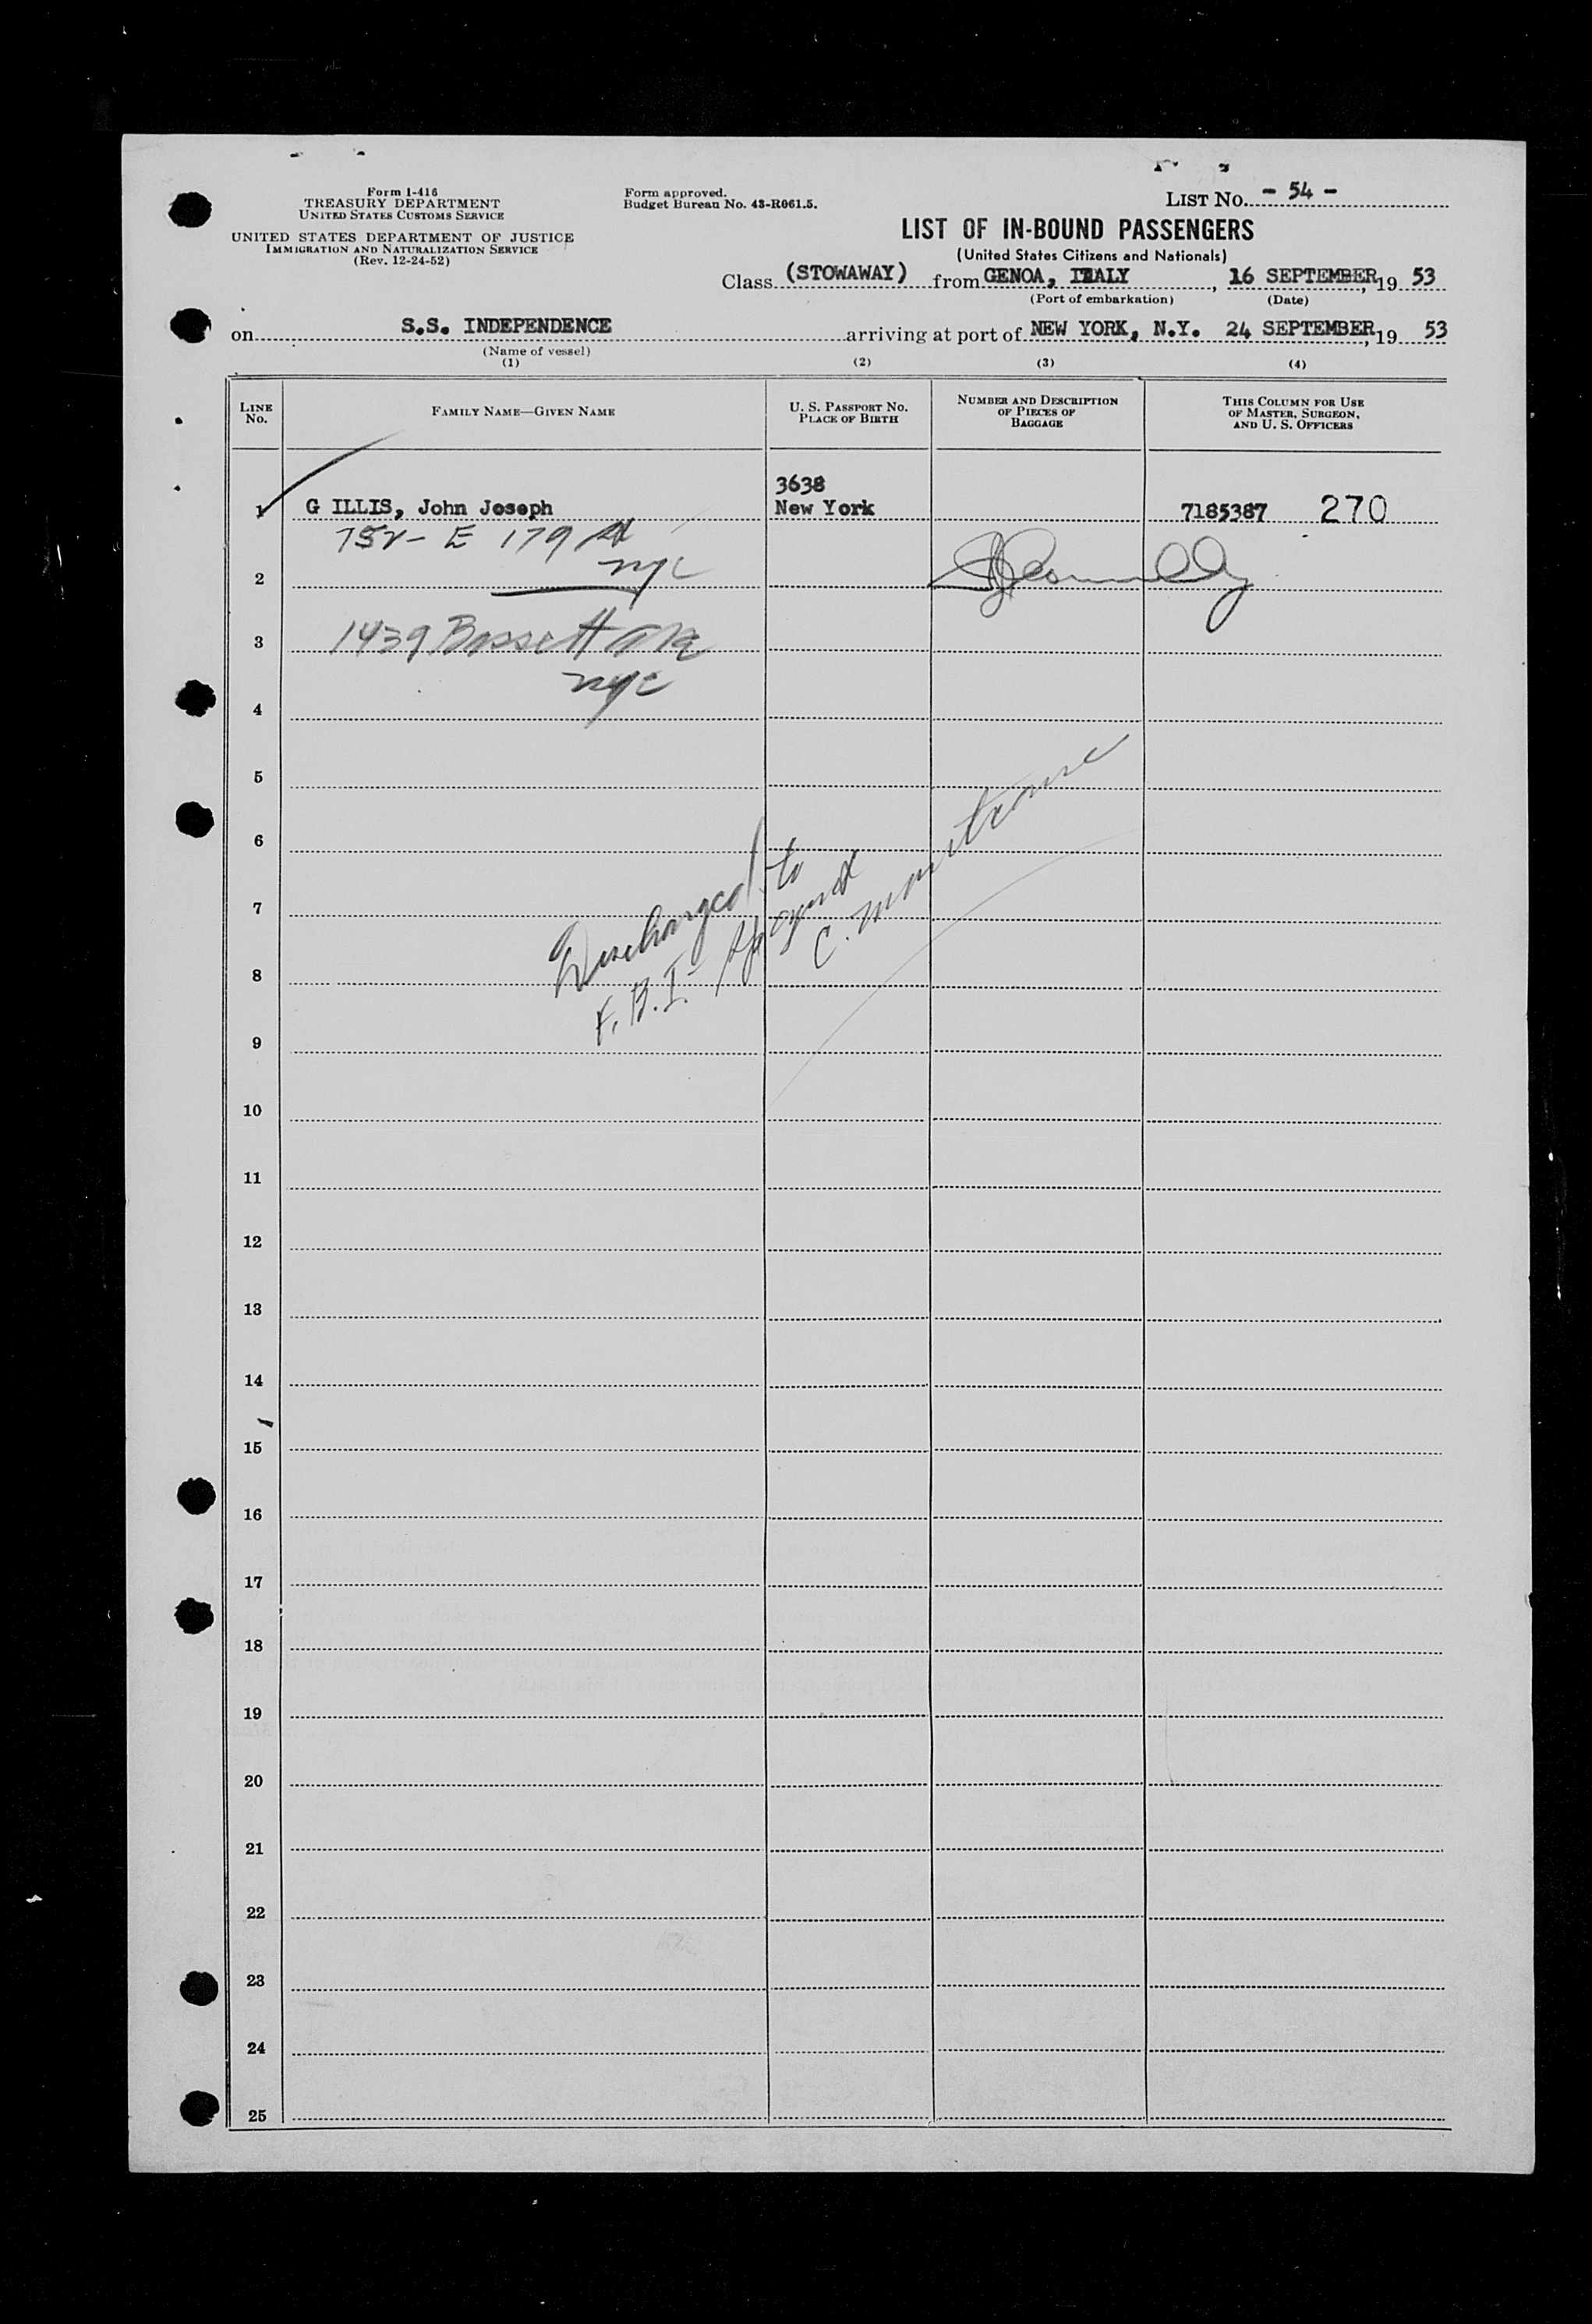 Form I-416
TREASURY DEPARTMENT
UNITED STATES CUSTOMS SERVICE
UNITED STATES DEPARTMENT OF JUSTICE
IMMIGRATION AND NATURALIZATION SERVICE
(Rev. 12-24-52)
Form approved.
Budget Bureau No. 43-R061.5.
LIST No. - 54 -
LIST OF IN-BOUND PASSENGERS
(United States Citizens and Nationals)
Class (STOWAWAY) from GENOA, ITALY, 16 SEPTEMBER, 19 53
(Port of embarkation) (Date)
on S.S. INDEPENDENCE arriving at port of NEW YORK, N.Y. 24 SEPTEMBER, 19 53
(Name of vessel)
(1) (2) (3) (4)
LINE No.
FAMILY NAME—GIVEN NAME
U. S. PASSPORT No. PLACE OF BIRTH
NUMBER AND DESCRIPTION OF PIECES OF BAGGAGE
THIS COLUMN FOR USE OF MASTER, SURGEON, AND U. S. OFFICERS
3638
1 G ILLIS, John Joseph New York 7185387 270
752- E 179 St
nyc
2
3 1439 Bassett Ave
nyc
4
5
6
7
8
9
Discharged to
F.B.I. agent
C.
10
11
12
13
14
15
16
17
18
19
20
21
22
23
24
25